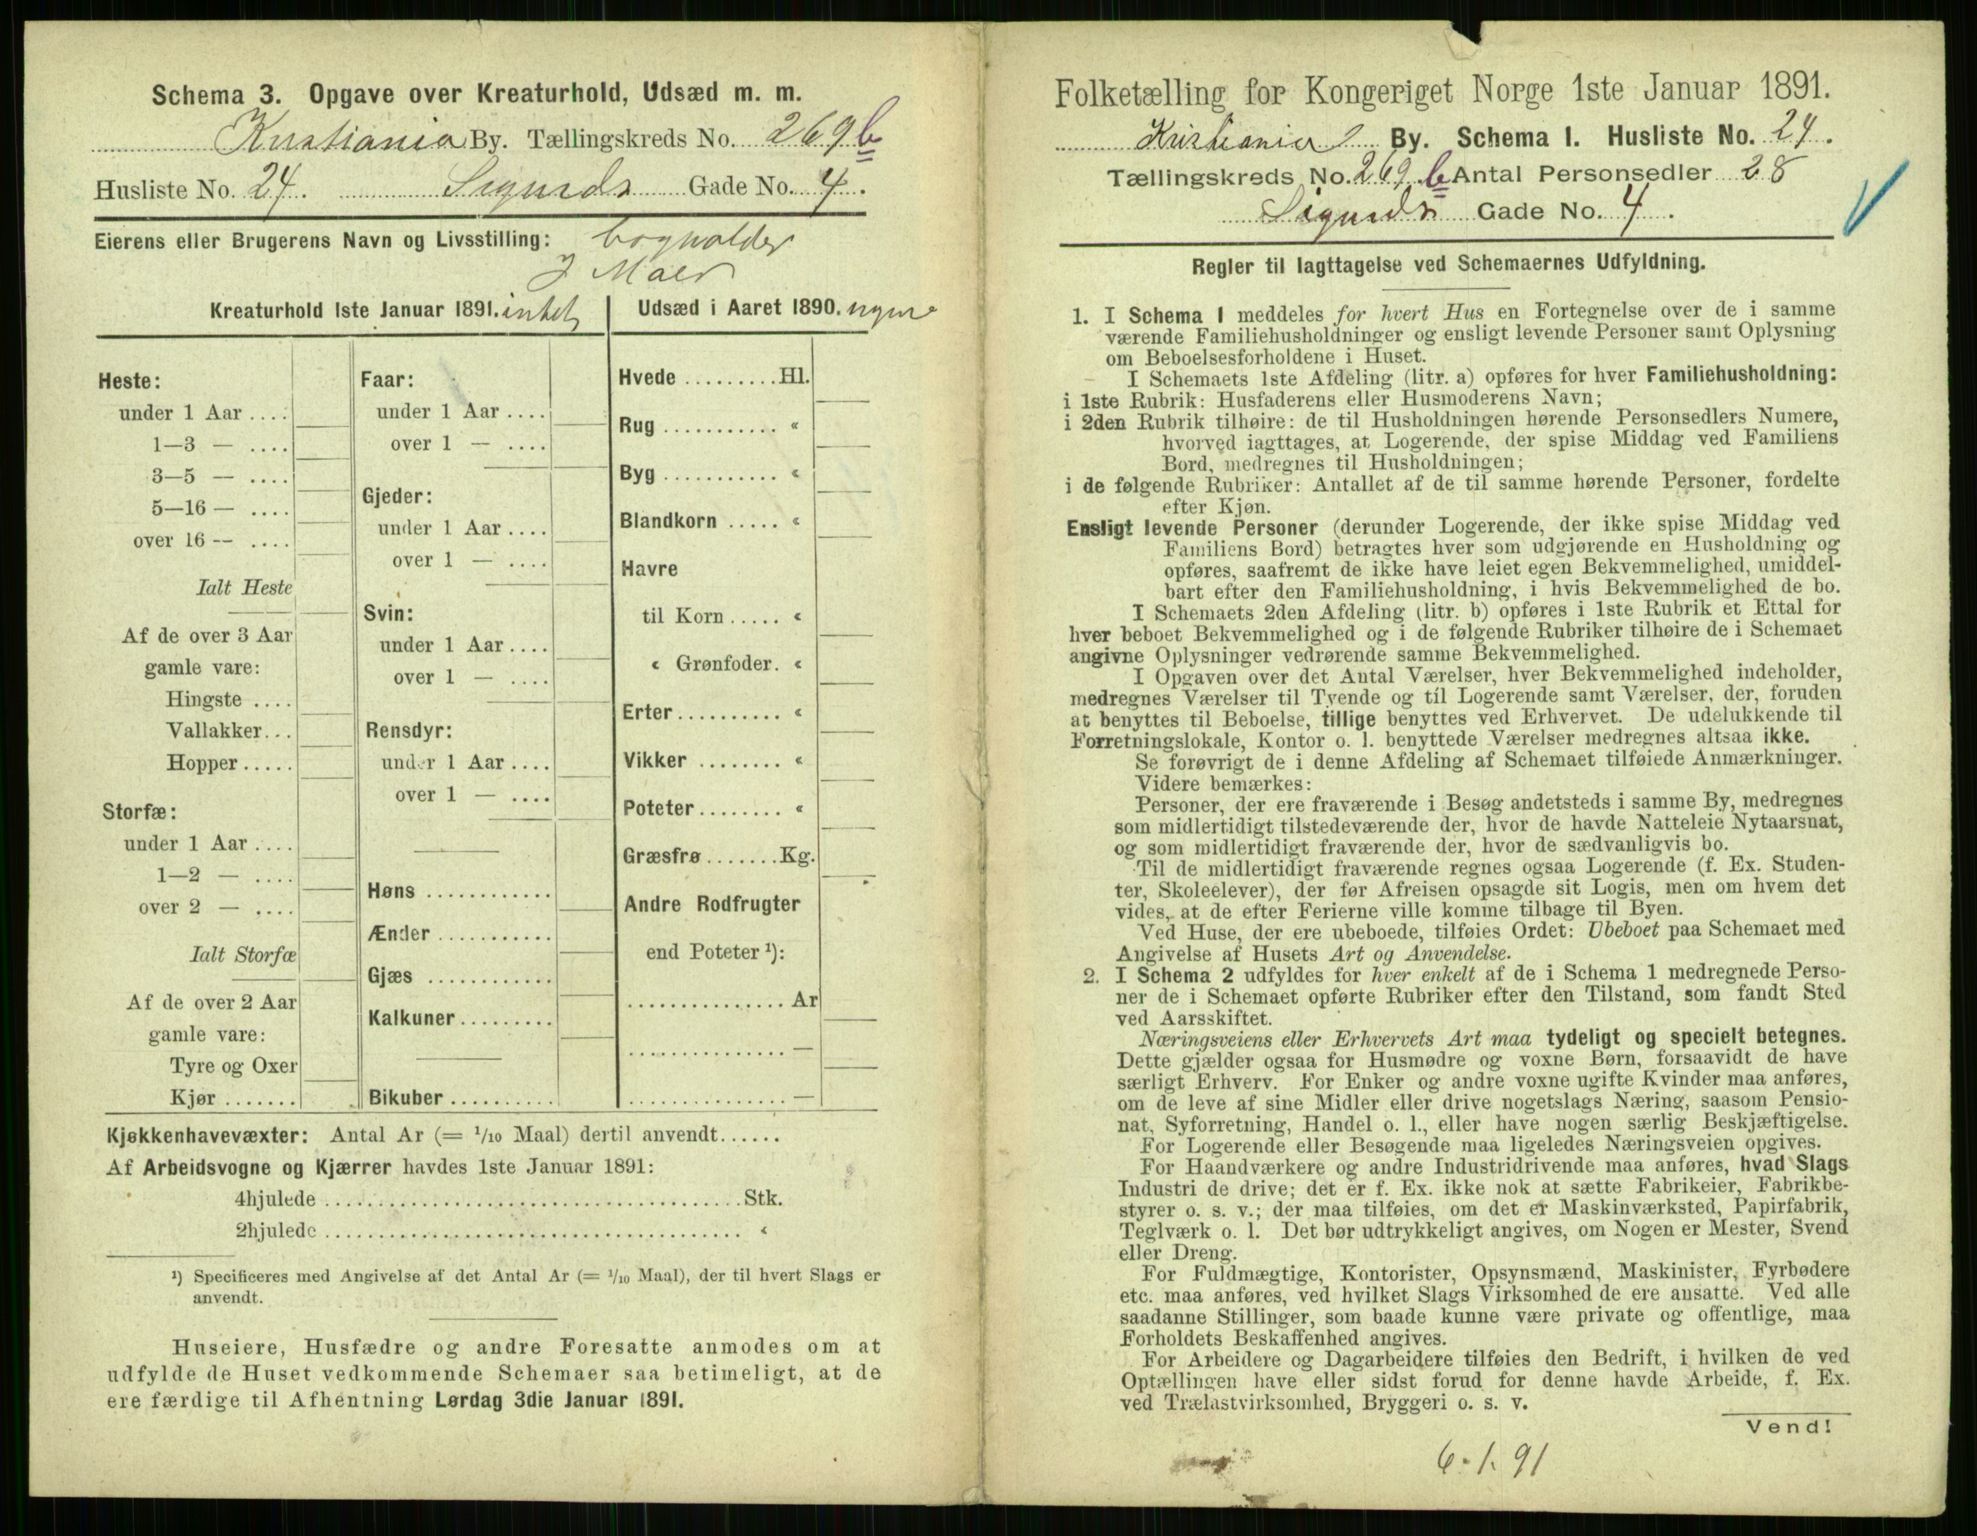 Schema 3. Opgave over Kreaturhold, Udsæd m. m.
Kristiania By. Tællingskreds No. 269 b
Husliste No. 24. Sigurds Gade No. 4.
Eierens eller Brugerens Navn og Livsstilling: bogholder
J Maer
Kreaturhold 1ste Januar 1891. intet
Heste:
under 1 Aar ....
1—3 — ....
3—5 — ....
5—16 — ....
over 16 — ....
Ialt Heste
Af de over 3 Aar
gamle vare:
Hingste ....
Vallakker...
Hopper.....
Storfæ:
under 1 Aar ....
1—2 — ....
over 2 — ....
Ialt Storfæ
Af de over 2 Aar
gamle vare:
Tyre og Oxer
Kjør .......
Faar:
under 1 Aar ....
over 1 — ....
Gjeder:
under 1 Aar ....
over 1 — ....
Svin:
under 1 Aar ....
over 1 — ....
Rensdyr:
under 1 Aar ....
over 1 — ....
Høns ............
Ænder ...........
Gjæs ............
Kalkuner.........
Bikuber ..........
Udsæd i Aaret 1890. ingen
Hvede .........Hl.
Rug ........... «
Byg ........... «
Blandkorn ..... «
Havre
til Korn ..... «
« Grønfoder. «
Erter.......... «
Vikker ........ «
Poteter........ «
Græsfrø .......Kg.
Andre Rodfrugter
end Poteter ¹):
............... Ar
............... —
............... —
Kjøkkenhavevæxter: Antal Ar (= 1/10 Maal) dertil anvendt......
Af Arbeidsvogne og Kjærrer havdes 1ste Januar 1891:
4hjulede ........................................Stk.
2hjulede ........................................ «
¹) Specificeres med Angivelse af det Antal Ar (= 1/10 Maal), der til hvert Slags er
anvendt.
Huseiere, Husfædre og andre Foresatte anmodes om at
udfylde de Huset vedkommende Schemaer saa betimeligt, at de
ere færdige til Afhentning Lørdag 3die Januar 1891.
Folketælling for Kongeriget Norge 1ste Januar 1891.
Kristiania By. Schema 1. Husliste No. 24.
Tællingskreds No. 269 b Antal Personsedler 28
Sigurds Gade No. 4.
Regler til Iagttagelse ved Schemaernes Udfyldning.
1. I Schema 1 meddeles for hvert Hus en Fortegnelse over de i samme
værende Familiehusholdninger og ensligt levende Personer samt Oplysning
om Beboelsesforholdene i Huset.
I Schemaets 1ste Afdeling (litr. a) opføres for hver Familiehusholdning:
i 1ste Rubrik: Husfaderens eller Husmoderens Navn;
i 2den Rubrik tilhøire: de til Husholdningen hørende Personsedlers Numere,
hvorved iagttages, at Logerende, der spise Middag ved Familiens
Bord, medregnes til Husholdningen;
i de følgende Rubriker: Antallet af de til samme hørende Personer, fordelte
efter Kjøn.
Ensligt levende Personer (derunder Logerende, der ikke spise Middag ved
Familiens Bord) betragtes hver som udgjørende en Husholdning og
opføres, saafremt de ikke have leiet egen Bekvemmelighed, umiddel-
bart efter den Familiehusholdning, i hvis Bekvemmelighed de bo.
I Schemaets 2den Afdeling (litr. b) opføres i 1ste Rubrik et Ettal for
hver beboet Bekvemmelighed og i de følgende Rubriker tilhøire de i Schemaet
angivne Oplysninger vedrørende samme Bekvemmelighed.
I Opgaven over det Antal Værelser, hver Bekvemmelighed indeholder,
medregnes Værelser til Tyende og til Logerende samt Værelser, der, foruden
at benyttes til Beboelse, tillige benyttes ved Erhvervet. De udelukkende til
Forretningslokale, Kontor o. l. benyttede Værelser medregnes altsaa ikke.
Se forøvrigt de i denne Afdeling af Schemaet tilføiede Anmærkninger.
Videre bemærkes:
Personer, der ere fraværende i Besøg andetsteds i samme By, medregnes
som midlertidigt tilstedeværende der, hvor de havde Natteleie Nytaarsnat,
og som midlertidigt fraværende der, hvor de sædvanligvis bo.
Til de midlertidigt fraværende regnes ogsaa Logerende (f. Ex. Studen-
ter, Skoleelever), der før Afreisen opsagde sit Logis, men om hvem det
vides, at de efter Ferierne ville komme tilbage til Byen.
Ved Huse, der ere ubeboede, tilføies Ordet: Ubeboet paa Schemaet med
Angivelse af Husets Art og Anvendelse.
2. I Schema 2 udfyldes for hver enkelt af de i Schema 1 medregnede Perso-
ner de i Schemaet opførte Rubriker efter den Tilstand, som fandt Sted
ved Aarsskiftet.
Næringsveiens eller Erhvervets Art maa tydeligt og specielt betegnes.
Dette gjælder ogsaa for Husmødre og voxne Børn, forsaavidt de have
særligt Erhverv. For Enker og andre voxne ugifte Kvinder maa anføres,
om de leve af sine Midler eller drive nogetslags Næring, saasom Pensio-
nat, Syforretning, Handel o. l., eller have nogen særlig Beskjæftigelse.
For Logerende eller Besøgende maa ligeledes Næringsveien opgives.
For Haandværkere og andre Industridrivende maa anføres, hvad Slags
Industri de drive; det er f. Ex. ikke nok at sætte Fabrikeier, Fabrikbe-
styrer o. s. v.; der maa tilføies, om det er Maskinværksted, Papirfabrik,
Teglværk o. l. Det bør udtrykkeligt angives, om Nogen er Mester, Svend
eller Dreng.
For Fuldmægtige, Kontorister, Opsynsmænd, Maskinister, Fyrbødere
etc. maa anføres, ved hvilket Slags Virksomhed de ere ansatte. Ved alle
saadanne Stillinger, som baade kunne være private og offentlige, maa
Forholdets Beskaffenhed angives.
For Arbeidere og Dagarbeidere tilføies den Bedrift, i hvilken de ved
Optællingen have eller sidst forud for denne havde Arbeide, f. Ex.
ved Trælastvirksomhed, Bryggeri o. s. v.
Vend!
6.1.91